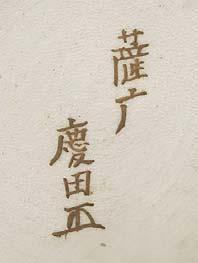 薩广
慶田